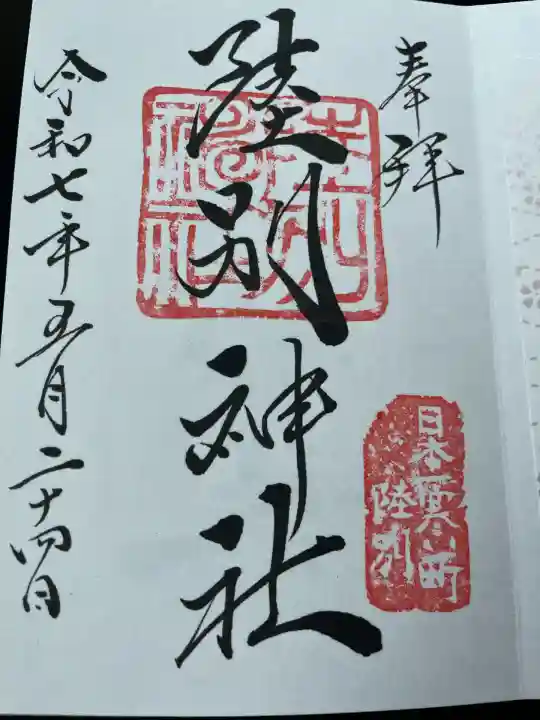 奉拜
日本一寒い町
陸別
陸別神社
令和七年五月二十四日